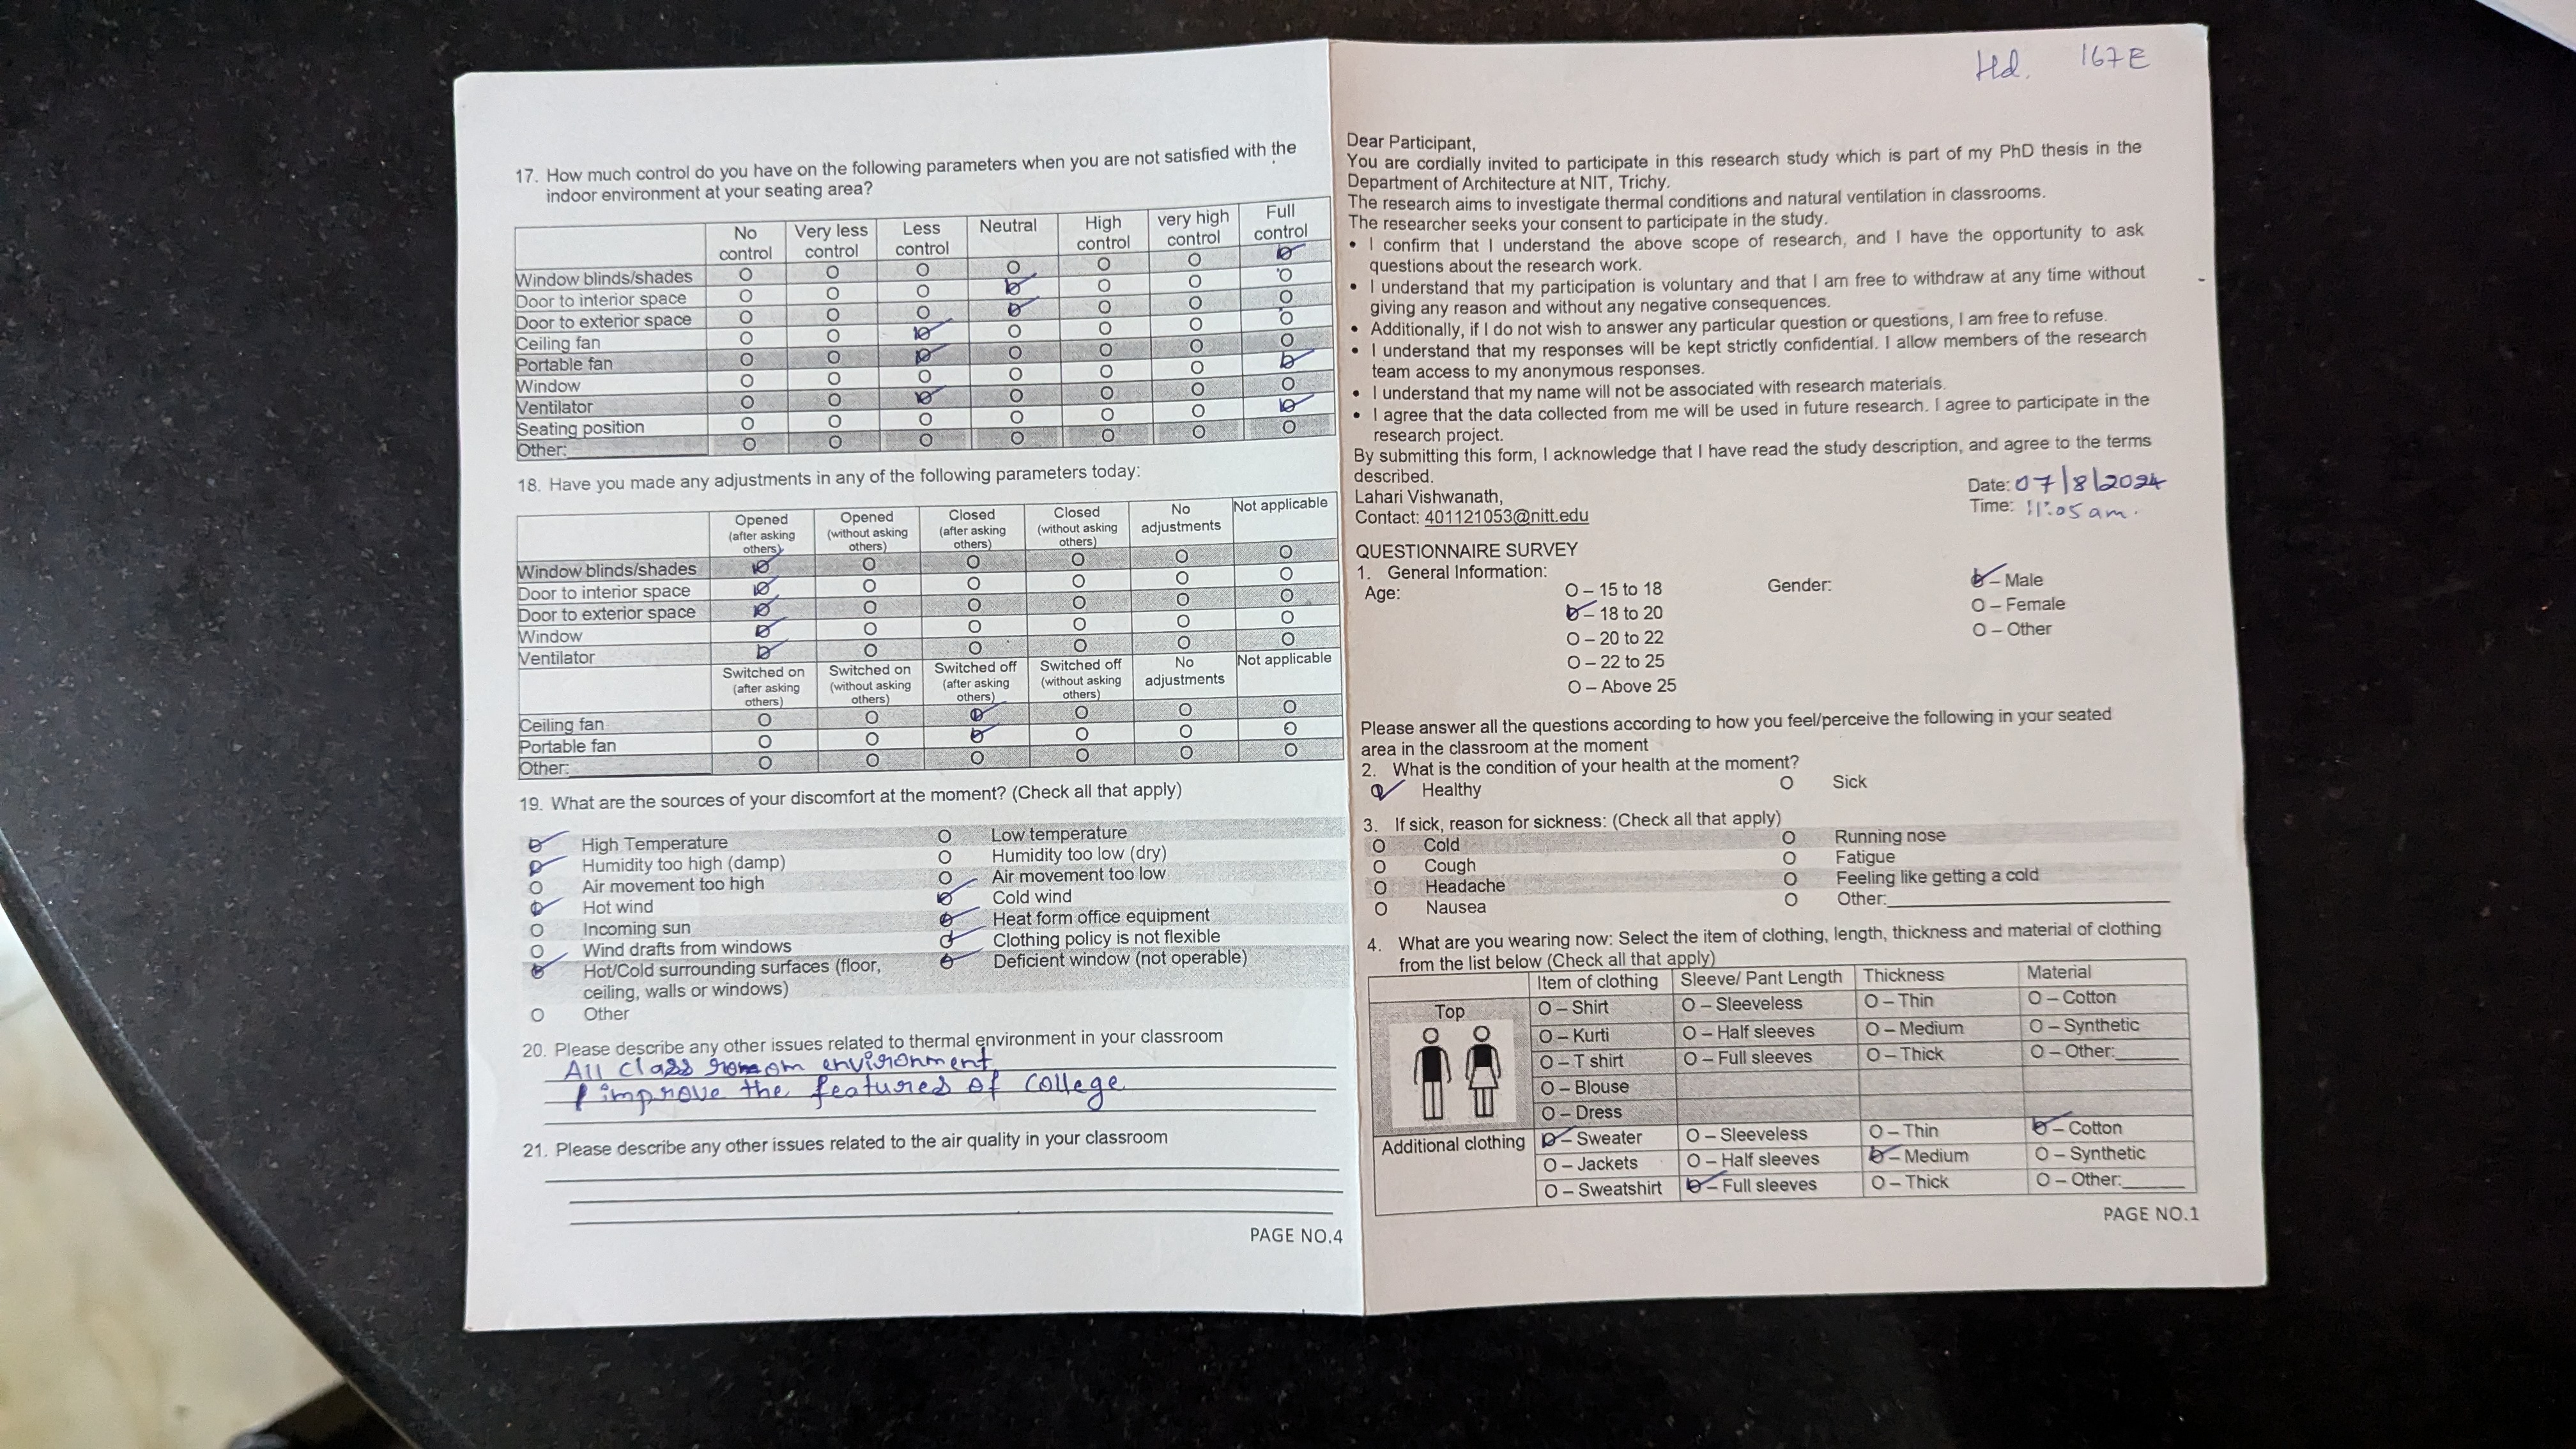 17. How much control do you have on the following parameters when you are not satisfied with the
indoor environment at your seating area?
No control Very less control Less control Neutral High control very high control Full control
Window blinds/shades O O O O O O O
Door to interior space O O O O O O O
Door to exterior space O O O O O O O
Ceiling fan O O O O O O O
Portable fan O O O O O O O
Window O O O O O O O
Ventilator O O O O O O O
Seating position O O O O O O O
Other: O O O O O O O
18. Have you made any adjustments in any of the following parameters today:
Opened (after asking others) Opened (without asking others) Closed (after asking others) Closed (without asking others) No adjustments Not applicable
Window blinds/shades O O O O O O
Door to interior space O O O O O O
Door to exterior space O O O O O O
Window O O O O O O
Ventilator O O O O O O
Switched on (after asking others) Switched on (without asking others) Switched off (after asking others) Switched off (without asking others) No adjustments Not applicable
Ceiling fan O O O O O O
Portable fan O O O O O O
Other: O O O O O O
19. What are the sources of your discomfort at the moment? (Check all that apply)
O High Temperature O Low temperature
O Humidity too high (damp) O Humidity too low (dry)
O Air movement too high O Air movement too low
O Hot wind O Cold wind
O Incoming sun O Heat form office equipment
O Wind drafts from windows O Clothing policy is not flexible
O Hot/Cold surrounding surfaces (floor, O Deficient window (not operable)
ceiling, walls or windows)
O Other
20. Please describe any other issues related to thermal environment in your classroom
All class environment
improve the features of College
21. Please describe any other issues related to the air quality in your classroom
PAGE NO.4
167E
Dear Participant,
You are cordially invited to participate in this research study which is part of my PhD thesis in the
Department of Architecture at NIT, Trichy.
The research aims to investigate thermal conditions and natural ventilation in classrooms.
The researcher seeks your consent to participate in the study.
• I confirm that I understand the above scope of research, and I have the opportunity to ask
questions about the research work.
• I understand that my participation is voluntary and that I am free to withdraw at any time without
giving any reason and without any negative consequences.
• Additionally, if I do not wish to answer any particular question or questions, I am free to refuse.
• I understand that my responses will be kept strictly confidential. I allow members of the research
team access to my anonymous responses.
• I understand that my name will not be associated with research materials.
• I agree that the data collected from me will be used in future research. I agree to participate in the
research project.
By submitting this form, I acknowledge that I have read the study description, and agree to the terms
described.
Lahari Vishwanath, Date: 07/8/2024
Contact: 401121053@nitt.edu Time: 11:05 am.
QUESTIONNAIRE SURVEY
1. General Information:
Age: O – 15 to 18 Gender: O – Male
O – 18 to 20 O – Female
O – 20 to 22 O – Other
O – 22 to 25
O – Above 25
Please answer all the questions according to how you feel/perceive the following in your seated
area in the classroom at the moment
2. What is the condition of your health at the moment?
O Healthy O Sick
3. If sick, reason for sickness: (Check all that apply)
O Cold O Running nose
O Cough O Fatigue
O Headache O Feeling like getting a cold
O Nausea O Other:
4. What are you wearing now: Select the item of clothing, length, thickness and material of clothing
from the list below (Check all that apply)
Item of clothing Sleeve/ Pant Length Thickness Material
Top O – Shirt O – Sleeveless O – Thin O – Cotton
O – Kurti O – Half sleeves O – Medium O – Synthetic
O – T shirt O – Full sleeves O – Thick O – Other:
O – Blouse
O – Dress
Additional clothing O – Sweater O – Sleeveless O – Thin O – Cotton
O – Jackets O – Half sleeves O – Medium O – Synthetic
O – Sweatshirt O – Full sleeves O – Thick O – Other:
PAGE NO.1